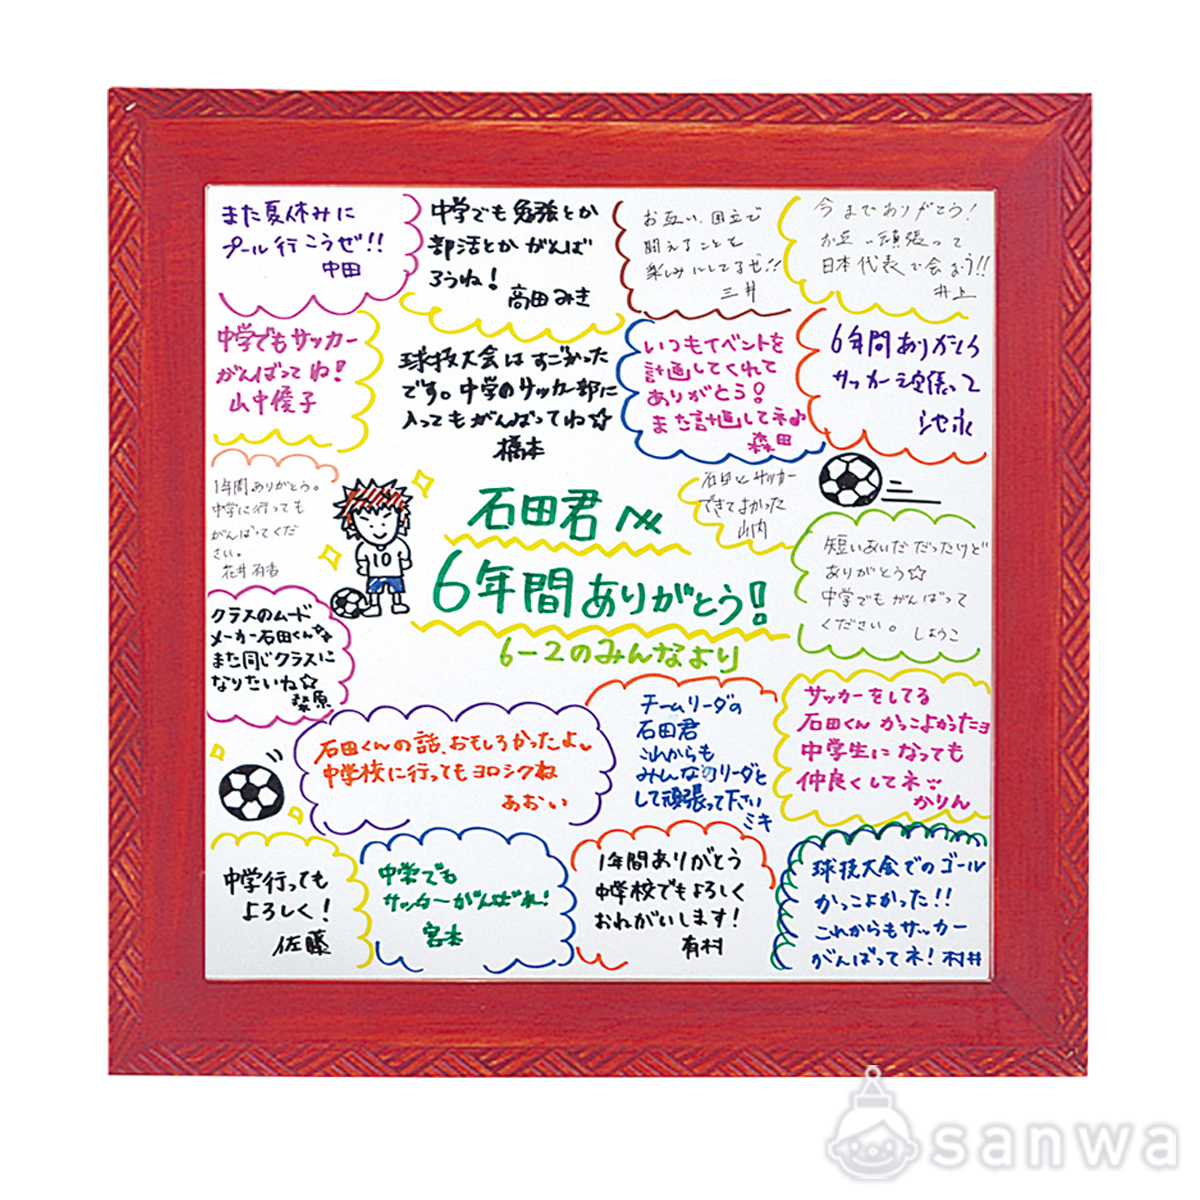 また夏休みに
プール行こうぜ!!
中田
中学でも勉強とか
部活とかがんば
ろうね!
高田みき
お互い、国立で
闘えることを
楽しみにしてるぜ!!
三井
今までありがとう!
お互い頑張って
日本代表で会おう!!
井上
中学でもサッカー
がんばってね!
山中優子
球技大会はすごかった
です。中学のサッカー部に
入ってもがんばってね☆
橋本
いつもイベントを
計画してくれて
ありがとう!
また計画してネ♪
森田
6年間ありがとう
サッカー頑張って
池永
1年間ありがとう。
中学に行っても
がんばってくだ
さい。
花井有香
10
石田君
6年間ありがとう!
6-2のみんなより
石田とサッカー
できてよかった
山内
短いあいだだったけど
ありがとう☆
中学でもがんばって
ください。しょうこ
クラスのムード
メーカー石田くん
また同じクラスに
なりたいね☆
桑原
石田くんの話、おもしろかったよ
中学校に行ってもヨロシクね
あおい
チームリーダの
石田君
これからも
みんなのリーダと
して頑張って下さい
ミキ
サッカーをしてる
石田くんかっこよかったョ
中学生になっても
仲良くしてネ
かりん
中学行っても
よろしく!
佐藤
中学でも
サッカーがんばれ!
宮本
1年間ありがとう
中学校でもよろしく
おねがいします!
有村
球技大会でのゴール
かっこよかった!!
これからもサッカー
がんばってネ!村井
sanwa